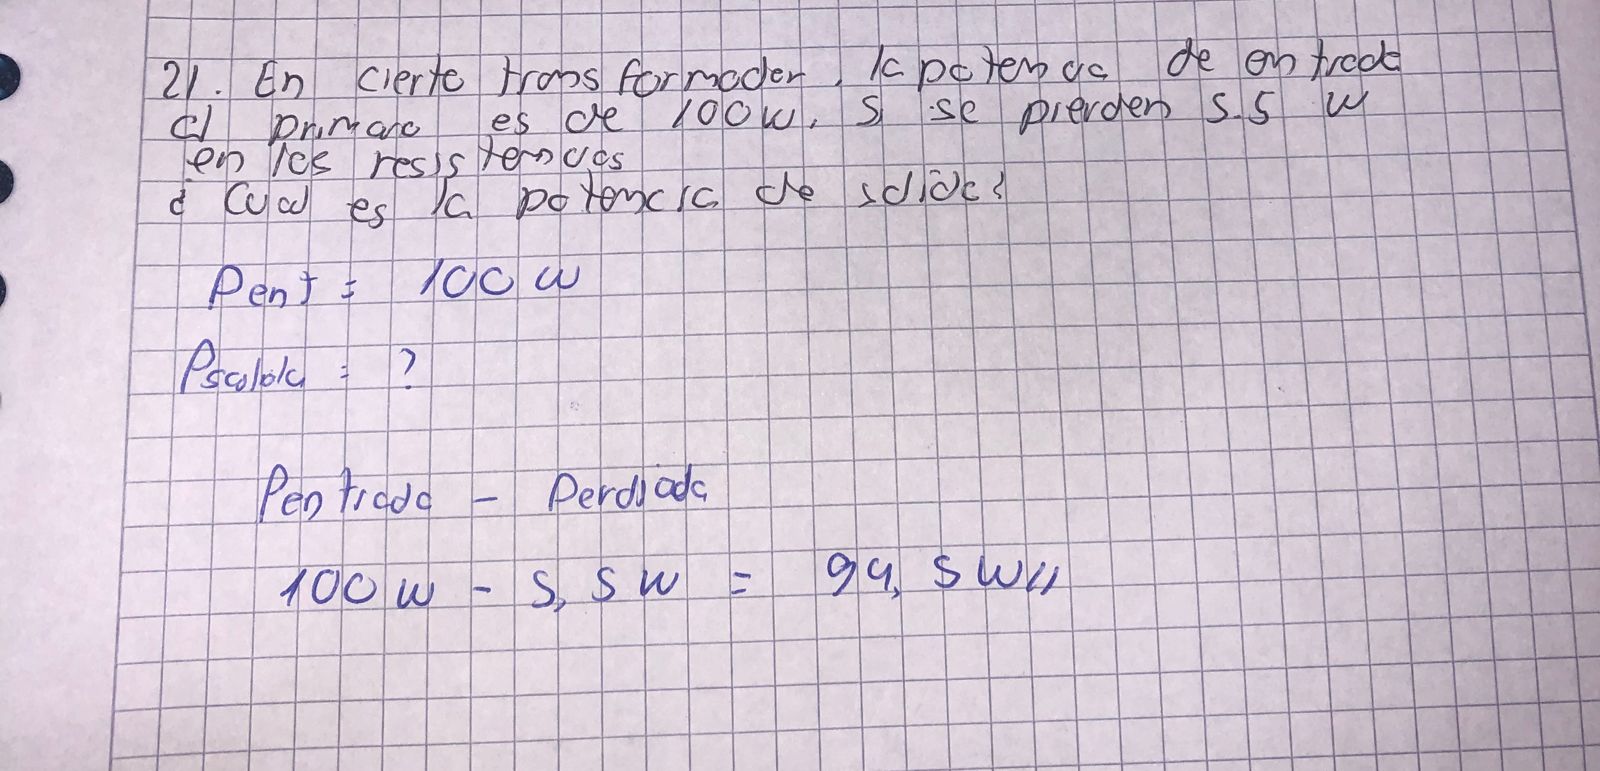 21. En cierto transformador, la potencia de entrada
al primario es de 100w. Si se pierden 5.5 w
en las resistencias
¿ Cual es la potencia de salida?
Pent = 100 w
Psalida = ?
Pentrada - Perdiada
100 w - 5,5 w = 94,5 w//